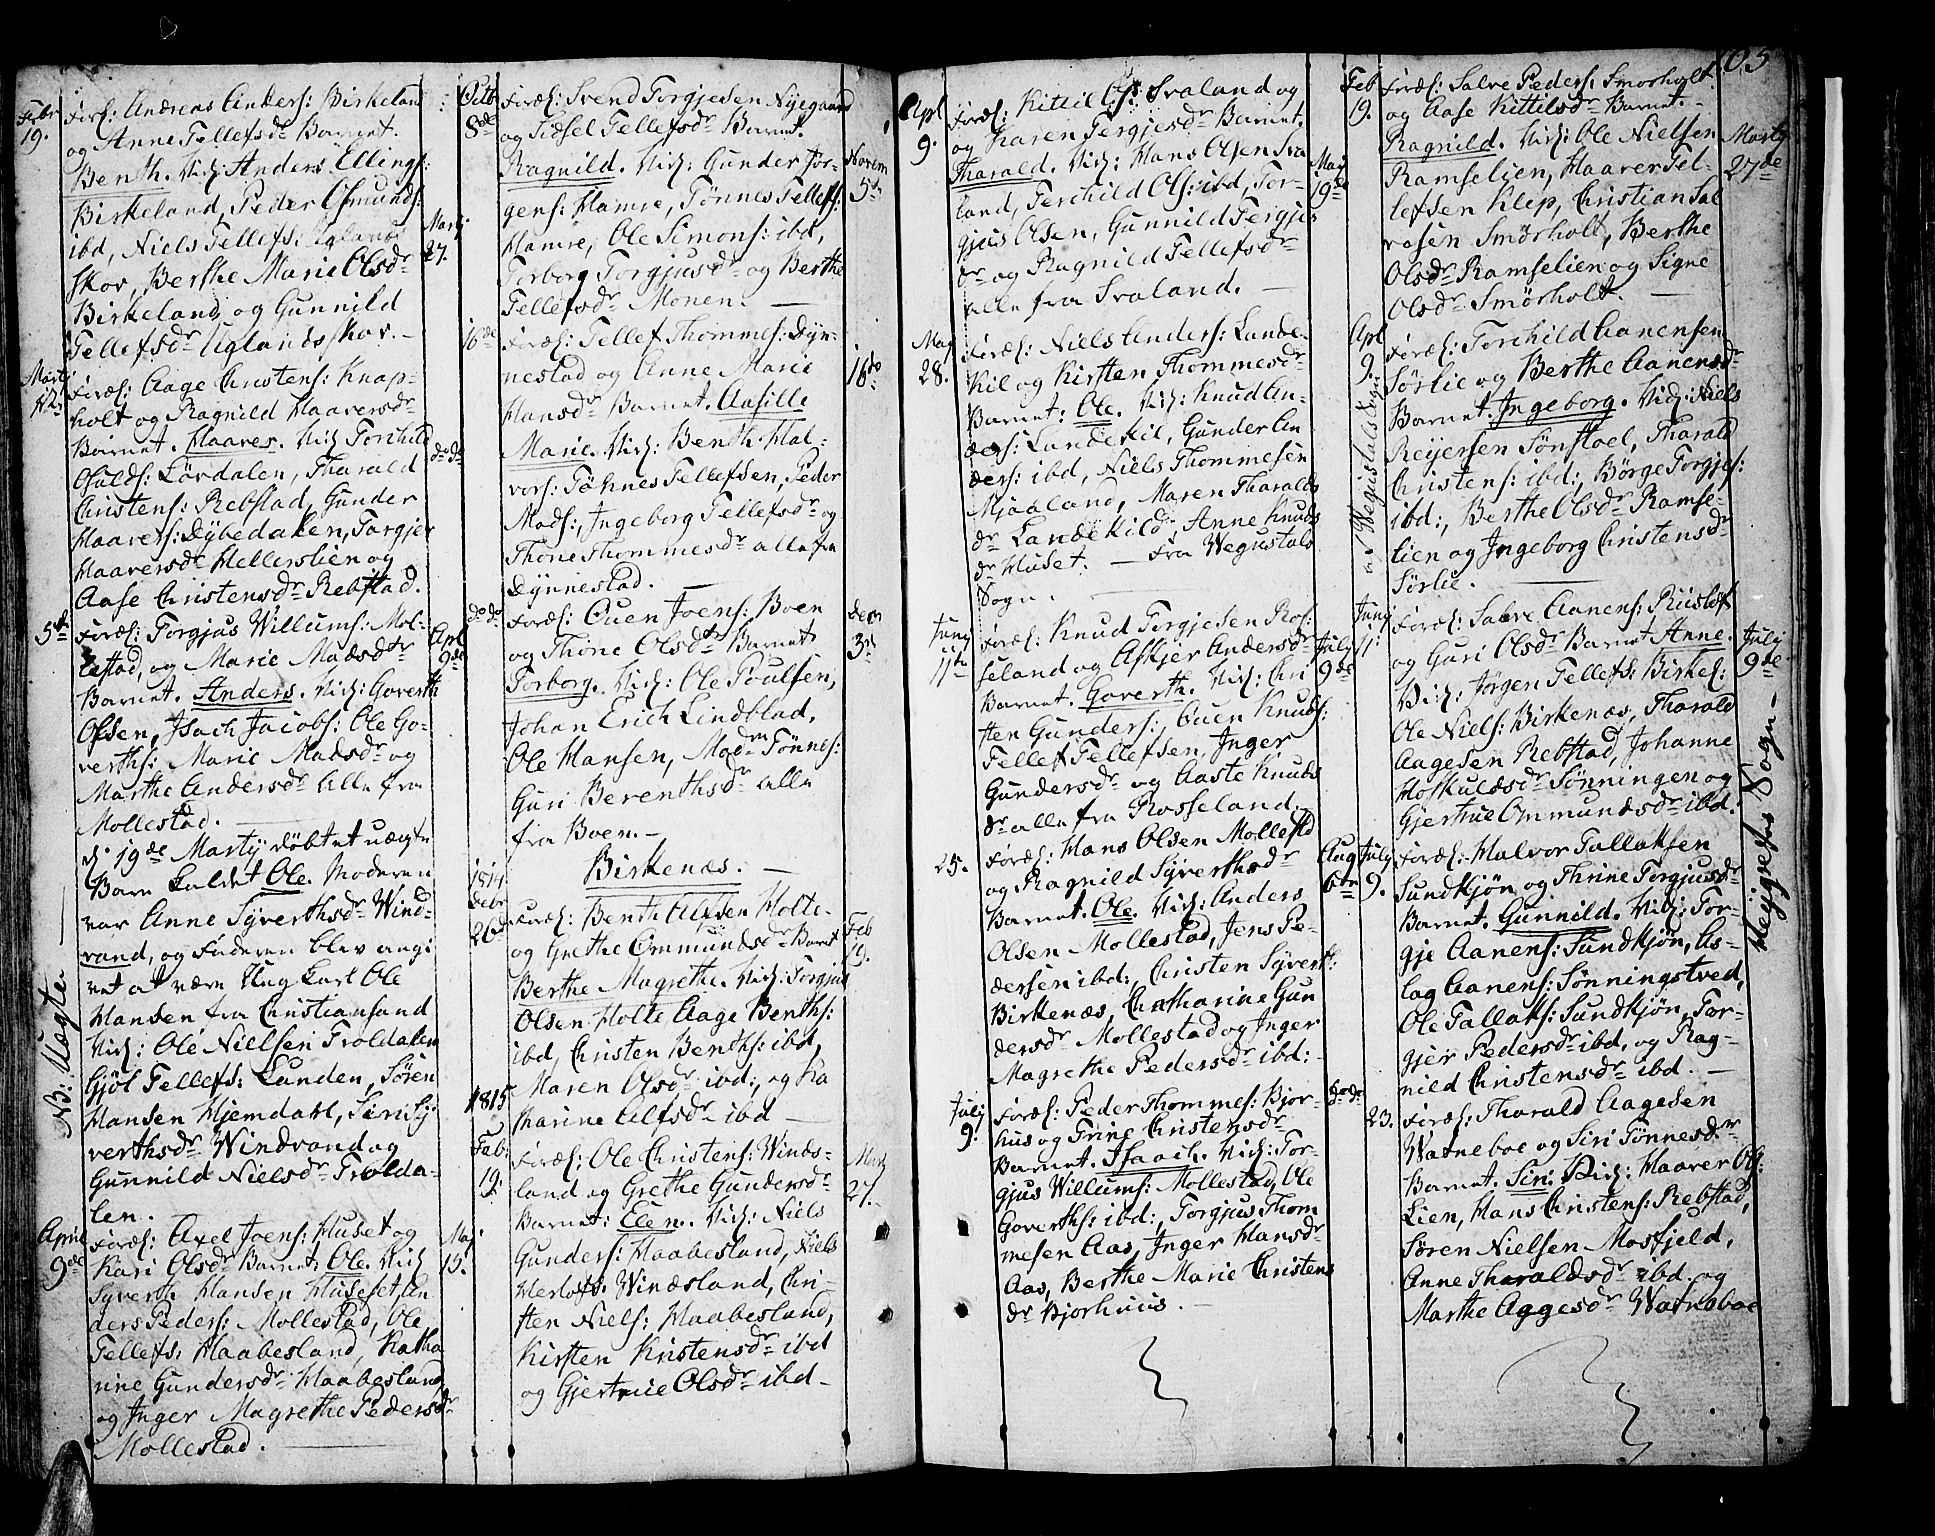 Febr
19.
Foræl: Andreas Anders: Birkeland
og Anne Tellefsdr Barnet.
Benth. Vid: Anders Ellings:
Birkeland, Peder Osmunds:
ibd, Niels Tellefs: Uglands
skov, Berthe Marie Olsdr
Birkeland og Gunnild
Tellefsdr Uglandsskov. –
Martj
27.
Martj
12.
Foræl: Aage Christens: Knap-
holt og Ragnild Haaversdr
Barnet. Haaver. Vid: Torchild
Osulds: Lövdalen, Tharald
Christens: Rebstad, Gunder
Haavers: Dybedaken, Torgjer
Haaversdr Hellerslien og
Aase Christensdr Rebstad.
do do
5te
Foræl: Torgjus Willums: Mol-
lestad, og Marie Madsdtr
Barnet. Anders. Vid: Goverth
Olsen, Isach Jacobs: Ole Go-
verths: Marie Madsdr og
Marthe Andersdr Alle fra
Mollestad.
Apl
9de
NB: Uægte
d. 19de Martij döbt et uægte
Barn kaldet Ole. Moderen
var Anne Syverthsdr Wind-
rand, og Faderen blev angi
vet at være Ung Karl Ole
Hansen fra Christiansand
Vid: Ole Nielsen Troldalen
Gjöl Tellefs: Lunden, Sören
Hansen Hjemdahl, Siri Sy-
verthsdr Windrand og
Gunnild Nielsdr Trolda-
len.
Aprill
9de
Foræl: Axel Joens: Huset og
Kari Olsdr Barnet. Ole. Vid:
Syverth Hansen Huset An
ders Peders: Mollestad, Ole
Tellefs: Haabesland, Katha
rine Gundersdr Haabesland
og Inger Magrethe Pedersdr
Mollestad.
Maj
15.
Octb
8de
Foræl: Svend Torgjesen Nyegaard
og Sidsel Tellefsdr Barnet.
Ragnild. Vid: Gunder Jör-
gens: Hamre, Tönnes Tellefs:
Hamre, Ole Simons: ibd,
Torborg Torgjusdr og Berthe
Tellefsdr Monen. –
Novem
5te
16de
Foræl: Tellef Thommes: Dyn-
nestad og Anne Marie
Hansdr Barnet. Aasille
Marie. Vid: Benth Hal-
vors: Töhnes Tellefsen, Peder
Mads:, Ingeborg Tellefsdr og
Thone Thommesdr alle fra
Dynnestad.
16de
do do
Foræl: Ouen Joens: Boen
og Thone Olsdtr Barnet
Torborg. Vid: Ole Poulsen,
Johan Erich Lindblad,
Ole Hansen, Madm Tönnes:
Guri Berenthsdr alle
fra Boen. –
decm
3de
Birkenæs. –
1814
Debr
26de
Foræl: Benth Alfsen Holte
og Grethe Ommundsdr Barnet
Berthe Magrethe. Vid: Torgjus
Olsen Holte Aage Benths:
ibd, Christen Benths: ibd,
Maren Olsdr ibd:, og Ka
tharine Alfsdr ibd –
Feb
19.
1815
Feb:
19.
Foræl: Ole Christens: Winds-
land og Grethe Gundersdr
Barnet: Elen. Vid: Niels
Gunders: Haabesland, Niels
Herlofs: Windsland, Chri-
sten Niels: Haabesland,
Kirsten Kristensdr ibd
og Gjertrue Olsdr ibd –
Mart
27.
Apl
9.
Foræl: Kittil Ols: Svaland og
og Karen Tergjesdr Barnet.
Tharald. Vid: Hans Olsen Sva
land, Terchild Ols: ibd, Tor-
gjus Olsen, Gunnild Tergjes
dr og Ragnild Tellefsdr
alle fra Svaland. –
Maj
19de
Maj
28.
Foræl: Niels Anders: Lande-
kil og Kirsten Thommesdr
Barnet: Ole. Vid: Knud An-
ders: Landekil, Gunder An
ders: ibd, Niels Thommesen
Mjaaland, Maren Tharalds
dr Landekild, Anne Knuds
dr Huset. – fra Wegustals
Sogn.
Junj
11te
Foræl: Knud Torgjesen Ros-
seland og Askjer Andersdr
Barnet. Goverth. Vid: Chri
sten Gunders:, Ouen Knuds:
Tellef Tellefsen, Inger
Gundersdr og Aaste Knuds
dr alle fra Rosseland.
July
9de
25.
Foræl: Hans Olsen Mollestd
og Ragnild Syverthsdr
Barnet. Ole. Vid: Anders
Olsen Mollestad, Jens Pe-
dersen ibd: Christen Syverts:
Birkenæs, Chatharine Gun
dersdr Mollestad og Inger
Magrethe Pedersdr ibd: –
Aug
6te
July
9.
Foræl: Peder Thommes: Bjor-
huus og Trine Christensdr
Barnet. Isaach. Vid: Tor-
gjus Willums: Mollestad, Ole
Goverths: ibd:, Torgjus Thom
mesen Aas, Inger Hansdr
Aas, Berthe Marie Christens
dr Bjorhuus. –
do do
105
Feb
19.
Foræl: Salve Peders: Smorholt
og Aase Kittilsdr Barnet. –
Ragnild. Vid: Ole Nielsen
Ramselien, Haaver Tel-
lefsen Klep, Christian Sal
vesen Smörholt, Berthe
Olsdr Ramselien og Signe
Olsdr Smörholt. –
Martij
27de
Apl
9.
Wegustals Sogn
Foræl: Torchild Aanensen
Sörlie og Berthe Aanensdr
Barnet. Ingeborg. Vid: Niels
Reijersen Sönstoel, Tharald
Christens: ibd:, Börge Torgjes:
ibd:, Berthe Olsdr Ramse-
lien og Ingeborg Christensdr
Sörlie.
Junj
11.
Foræl: Salve Aanens: Riislöf
og Guri Olsdr Barnet Anne.
Vid: Jörgen Tellefs: Birkel:
Ole Niels: Birkenæs, Tharald
Aagesen Rebstad, Johanne
Hoskuldsdr Sönningen og
Gjertrue Ommundsdr ibd.
July
9de
July
9.
Foræl: Halvor Tallaksen
Sundkjön og Thrine Torgjusdr
Barnet. Gunnild. Vid: Tor-
gje Aanens: Sundkjön, As-
lag Aanens: Sönningstved,
Ole Tallaks: Sundkjön, Tor-
gjer Pedersdr ibd, og Rag-
nild Christensdr ibd. –
Hejgrefos Sogn –
23.
Foræl: Tharald Aagesen
Watneboe og Siri Tönnesdr
Barnet. Siri. Vid: Haaver Ols:
Lien, Hans Christens: Rebstad,
Sören Nielsen Mosfjeld,
Anne Tharaldsdr ibd. og
Marthe Aggesdr Watneboe